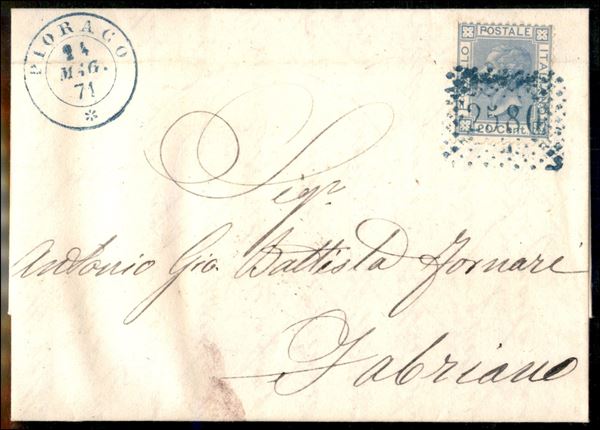 PIORACO
24
MAG.
71
POSTALE
ITALIANO
20 Cent.
Sig.r
Antonio Gio. Battista Fornari
Fabriano